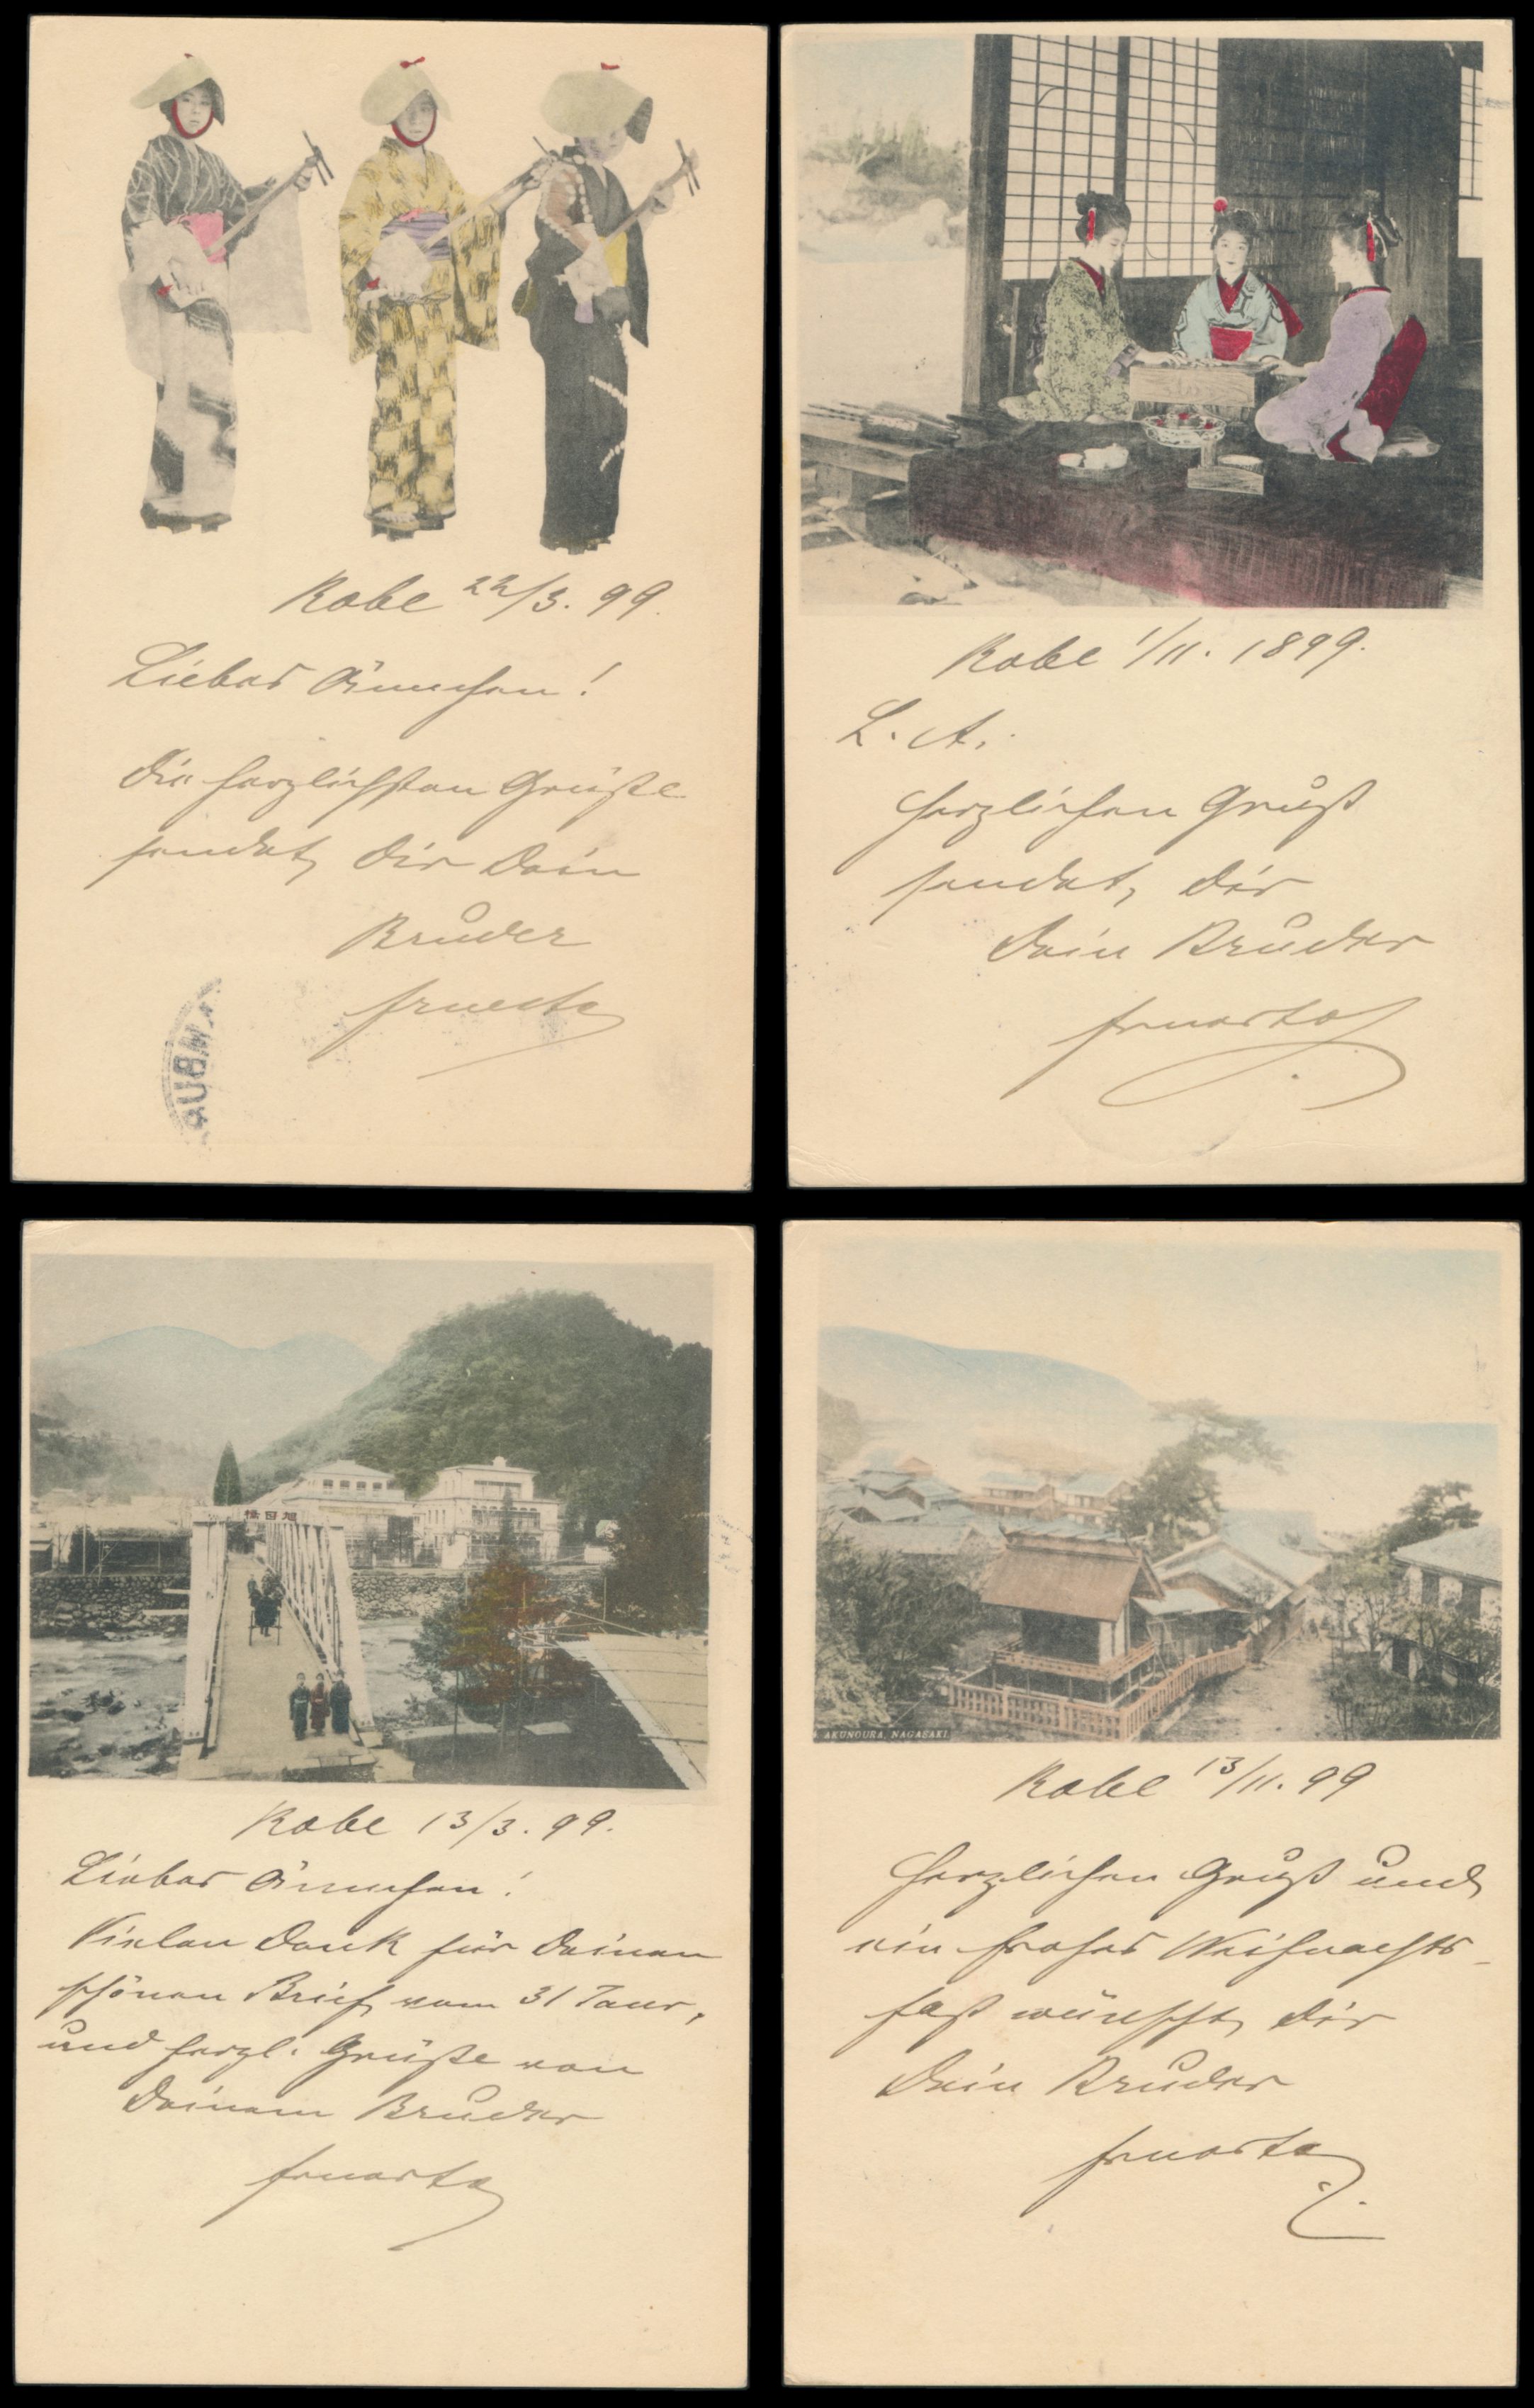 Kobe 22/3. 99.
Liebes Ännchen!
Die herzlichsten Grüße
sendet Dir Dein
Bruder
Kobe 1/11. 1899.
L. A.
Herzlichen Gruß
sendet Dir
Dein Bruder
旭日橋
Kobe 13/3. 99.
Liebes Ännchen!
Vielen Dank für Deinen
schönen Brief vom 31 Januar,
und herzl. Grüße von
Deinem Bruder
AKUNOURA, NAGASAKI.
Kobe 13/11. 99
Herzlichen Gruß und
ein frohes Weihnachts-
fest wünscht Dir
Dein Bruder